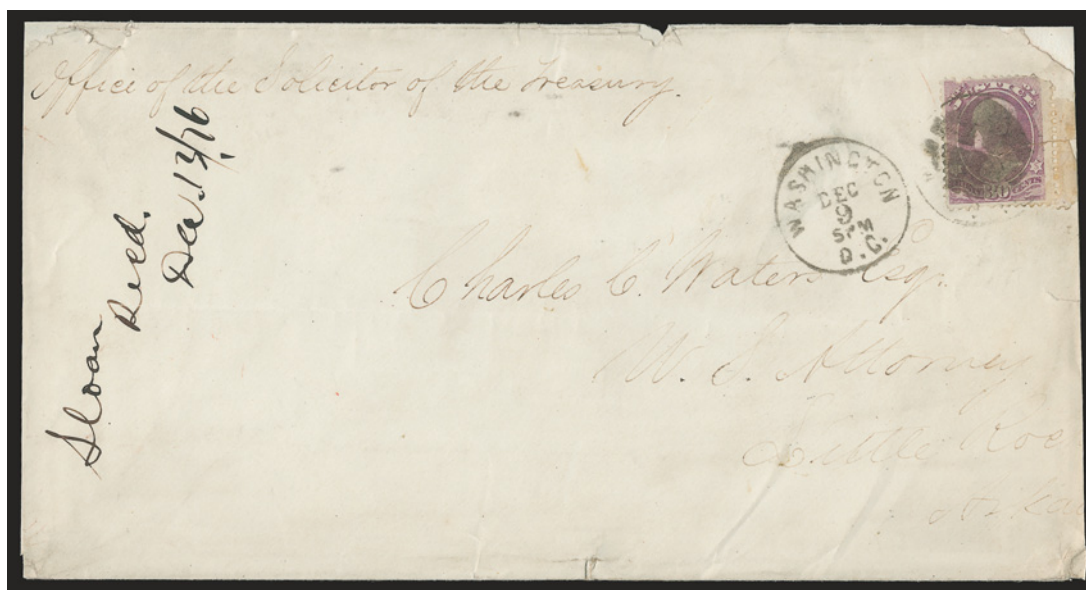 Office of the Solicitor of the Treasury.
Sloan
Recd.
Dec. 12/76
WASHINGTON
DEC
9
5PM
D.C.
30
CENTS
Charles C. Waters Esq.
U. S. Attorney
Little Roc
Arka